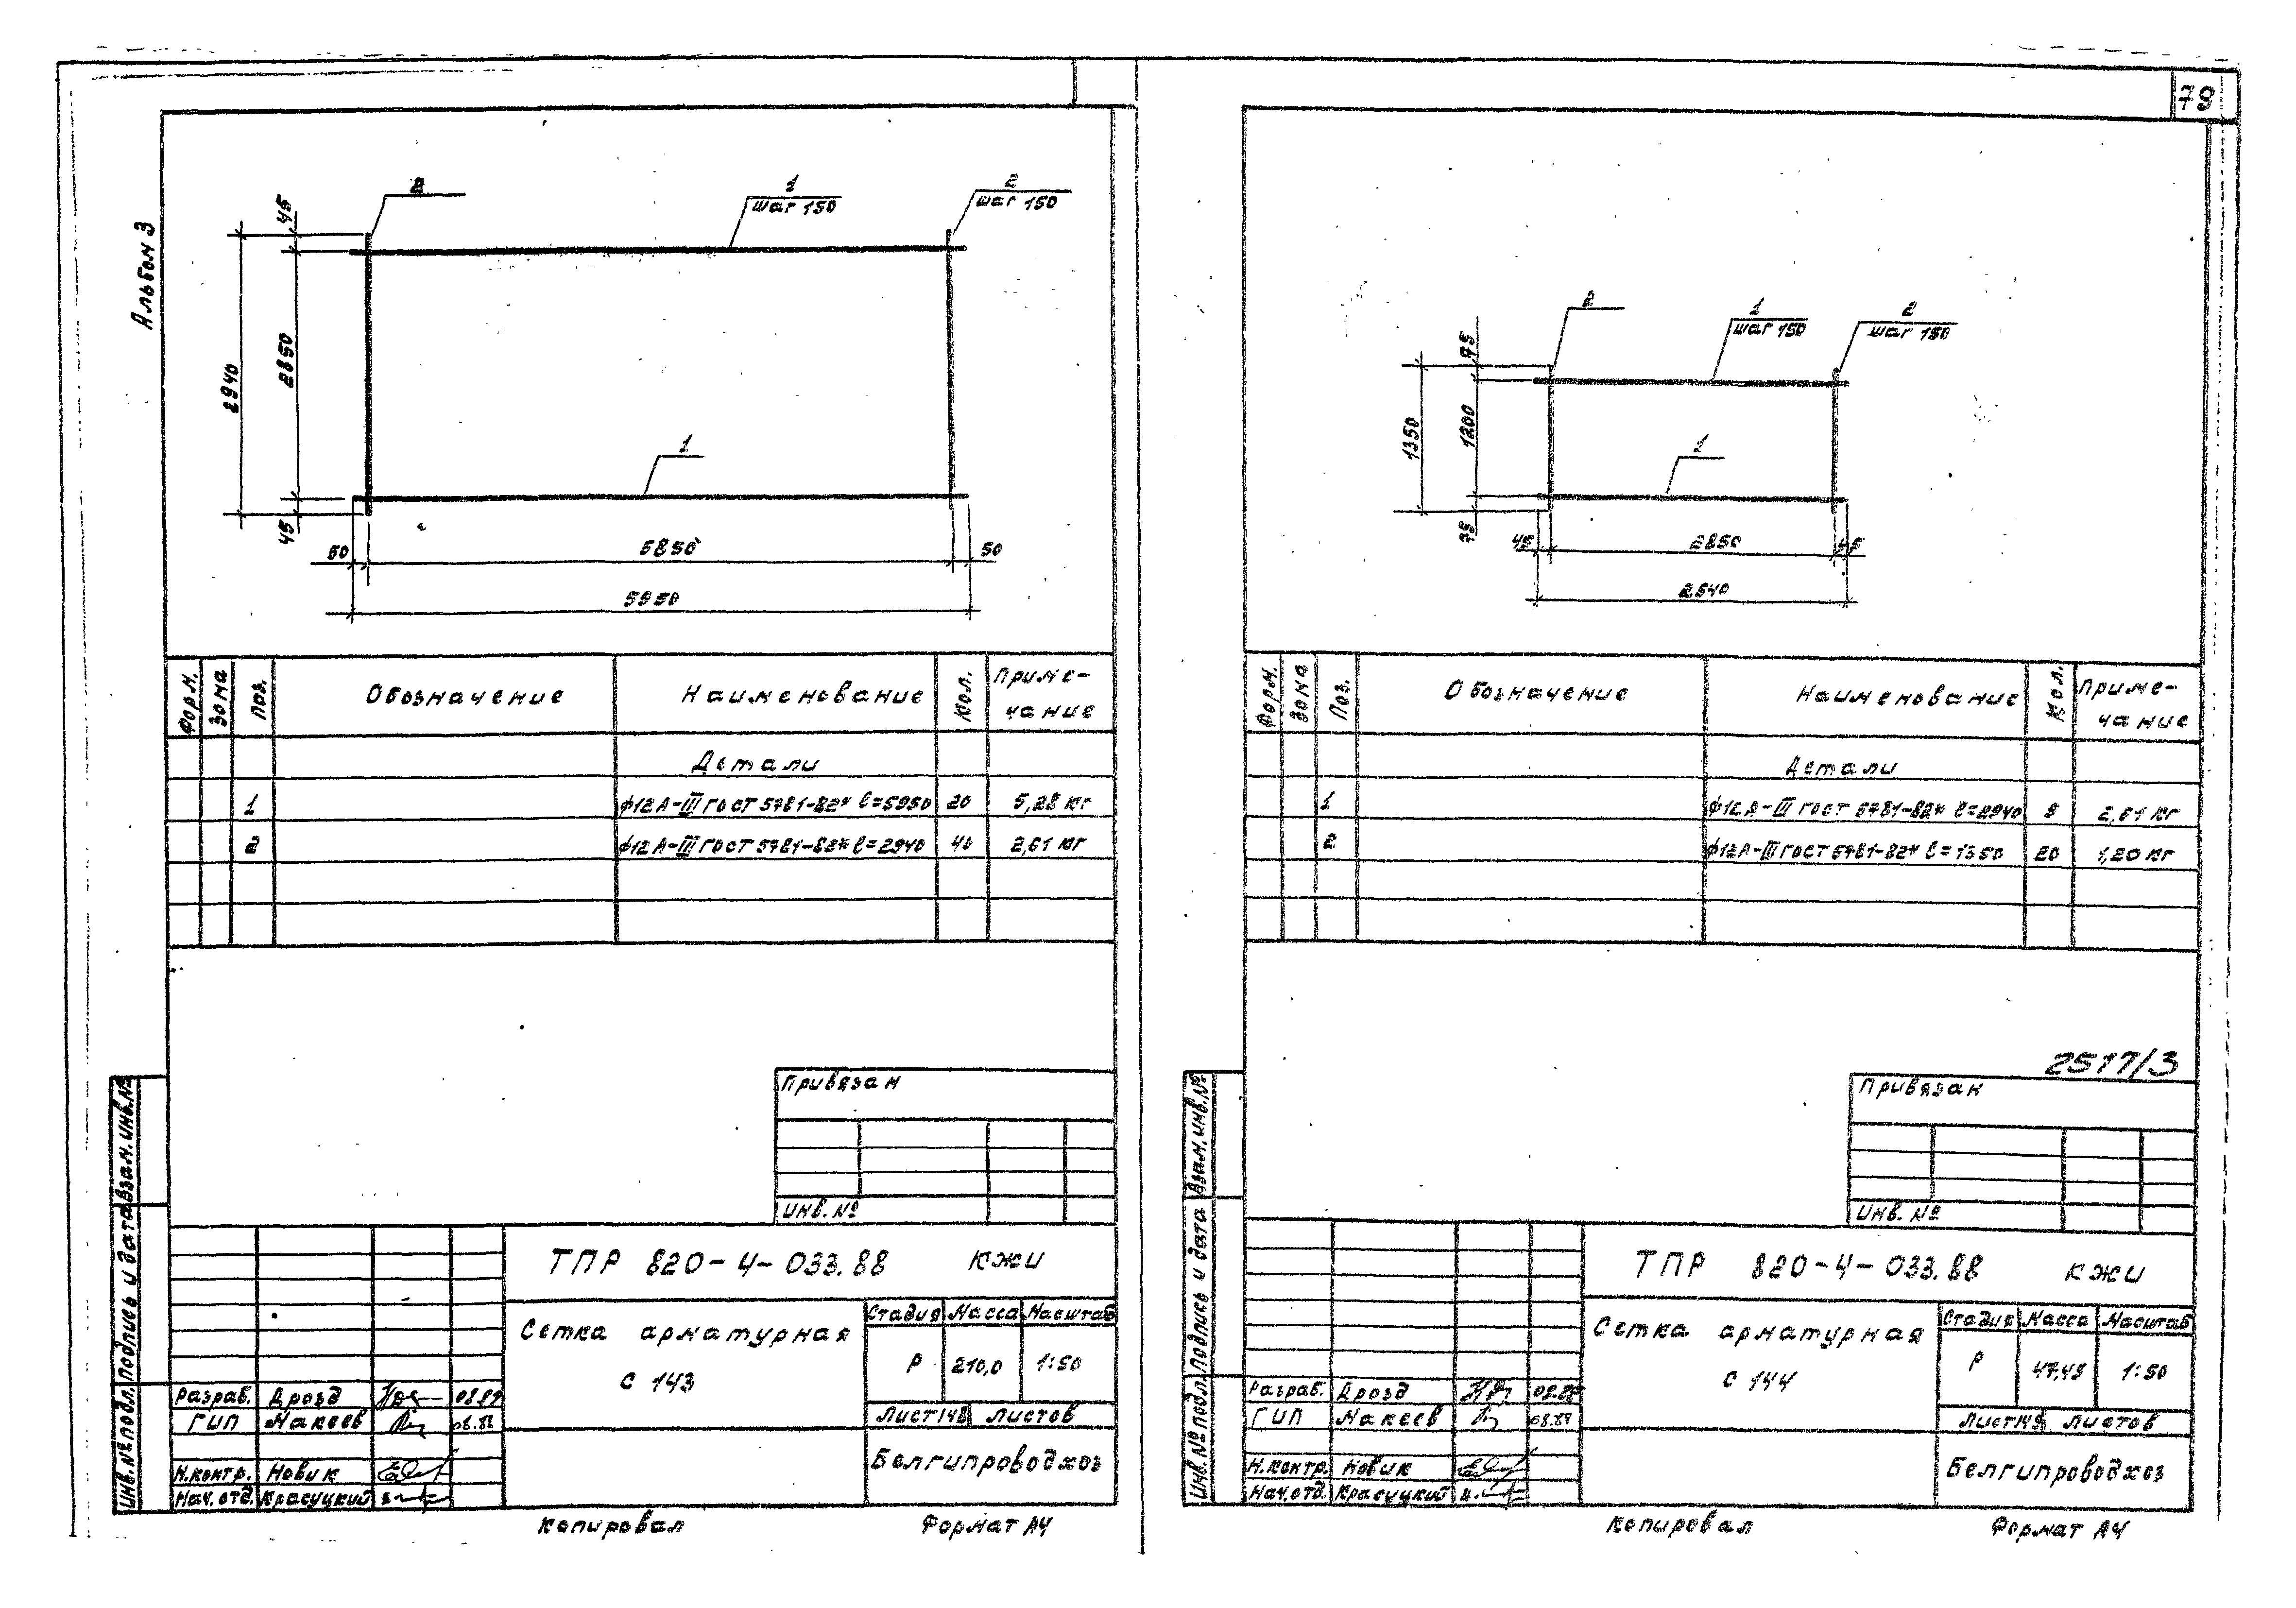 79
Альбом 3
2
1
шаг 150
2
шаг 150
45
2850
2940
45
1
50
5850
50
5950
Форм.
Зона
Поз.
Обозначение
Наименование
Кол.
Приме-
чание
Детали
1 ф12А-III ГОСТ 5781-82* l=5950 20 5,28 кг
2 ф12А-III ГОСТ 5781-82* l=2940 40 2,61 кг
Привязан
Инв. №
ТПР 820-4-033.88 КЖИ
Сетка арматурная
С 143
Стадия Масса Масштаб
Р 210,0 1:50
Лист 148 Листов
Белгипроводхоз
Разраб. Дрозд
ГИП Макеев 08.88
Н.контр. Новик
Нач.отд. Красуцкий
Инв. № подл.
Подпись и дата
Взам. инв. №
Копировал
Формат А4
2
1
шаг 150
2
шаг 150
75
1200
1350
75
1
45
2850
45
2540
Форм.
Зона
Поз.
Обозначение
Наименование
Кол.
Приме-
чание
Детали
1 ф12А-III ГОСТ 5781-82* l=2940 9 2,61 кг
2 ф12А-III ГОСТ 5781-82* l=1350 20 1,20 кг
2517/3
Привязан
Инв. №
ТПР 820-4-033.88 КЖИ
Сетка арматурная
С 144
Стадия Масса Масштаб
Р 47,49 1:50
Лист 149 Листов
Белгипроводхоз
Разраб. Дрозд
ГИП Макеев
Н.контр. Новик
Нач.отд. Красуцкий
Инв. № подл.
Подпись и дата
Взам. инв. №
Копировал
Формат А4